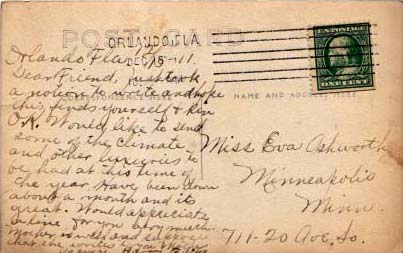 POST CARD
ORLANDO, FLA.
DEC 15
U.S. POSTAGE
ONE CENT
CORRESPONDENCE HERE
NAME AND ADDRESS HERE
Orlando Fla
Dear Friend, Just took
a notion to write and hope
this finds yourself & kin
O.K. Would like to send
some of the climate
and other luxuries to
be had at this time of
the year. Have been down
about a month and its
great. Would appreciate
a line for you very much.
Mother is well and
that she writes to you
Miss Eva Ashworth
Minneapolis
Minn.
711-20 Ave. So.